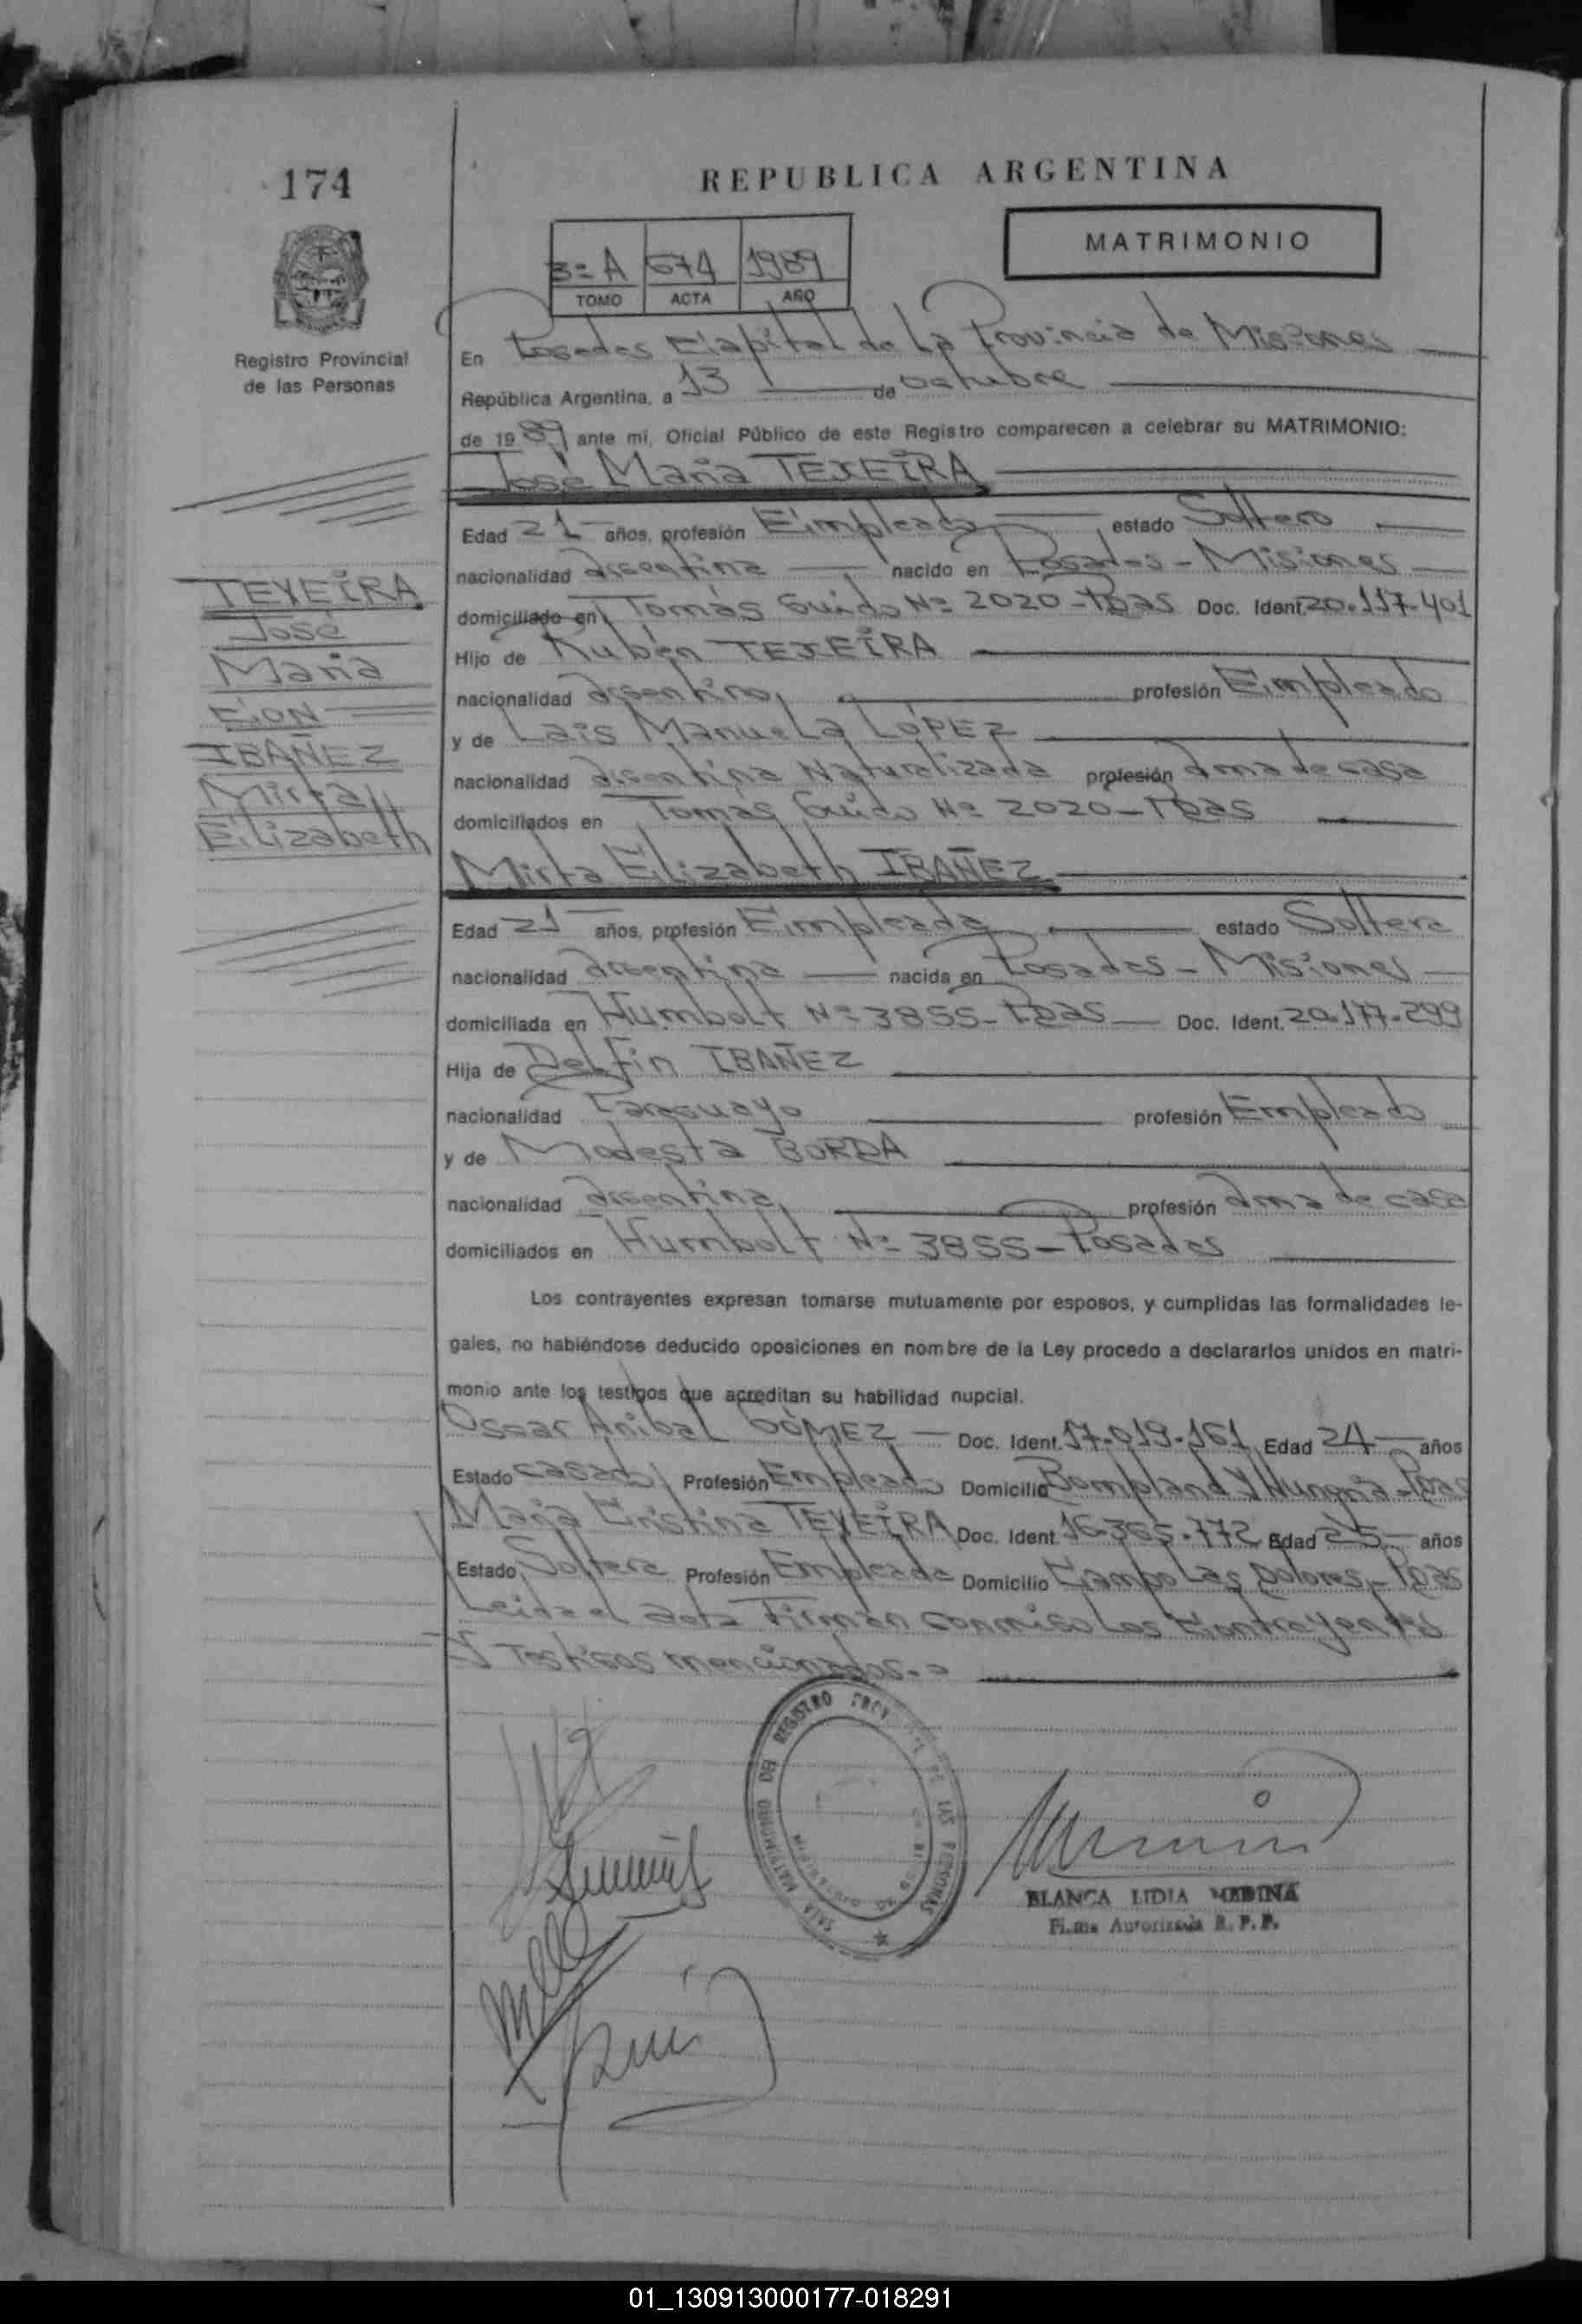 174
REPUBLICA ARGENTINA
MATRIMONIO
3º A 674 1989
TOMO ACTA AÑO
Registro Provincial
de las Personas
En Posadas Capital de La Provincia de Misiones
República Argentina, a 13 de octubre
de 1989 ante mi, Oficial Público de este Registro comparecen a celebrar su MATRIMONIO:
José Maria TEXEIRA
Edad 21 años, profesión Empleado estado Soltero
nacionalidad argentina nacido en Posadas - Misiones
domiciliado en Tomás Guido Nº 2020 - Pdas Doc. Ident. 20.117.401
Hijo de Rubén TEXEIRA
nacionalidad argentino profesión Empleado
y de Lais Manuela LÓPEZ
nacionalidad argentina Naturalizada profesión ama de casa
domiciliados en Tomás Guido Nº 2020 - Pdas
TEXEIRA
José
Maria
CON
IBAÑEZ
Mirta
Elizabeth
Mirta Elizabeth IBAÑEZ
Edad 21 años, profesión Empleada estado Soltera
nacionalidad argentina nacida en Posadas - Misiones
domiciliada en Humbolt Nº 3855 - Pdas Doc. Ident. 20.177.299
Hija de Delfin IBAÑEZ
nacionalidad Paraguayo profesión Empleado
y de Modesta BORDA
nacionalidad argentina profesión ama de casa
domiciliados en Humbolt Nº 3855 - Posadas
Los contrayentes expresan tomarse mutuamente por esposos, y cumplidas las formalidades le-
gales, no habiéndose deducido oposiciones en nombre de la Ley procedo a declararlos unidos en matri-
monio ante los testigos que acreditan su habilidad nupcial.
Oscar Anibal GÓMEZ Doc. Ident. 17.019.161 Edad 24 años
Estado casado Profesión Empleado Domicilio Bompland y Hungria - Pdas
Maria Cristina TEXEIRA Doc. Ident. 16.365.772 Edad 25 años
Estado Soltera Profesión Empleada Domicilio Campo Las Dolores - Pdas
Leida el acta Firman conmigo Los Contrayentes
y Testigos mencionados.-
SALA MATRIMONIO DEL REGISTRO PROV DE LAS PERSONAS
BLANCA LIDIA MEDINA
Firma Autorizada R. P. P.
01_130913000177-018291